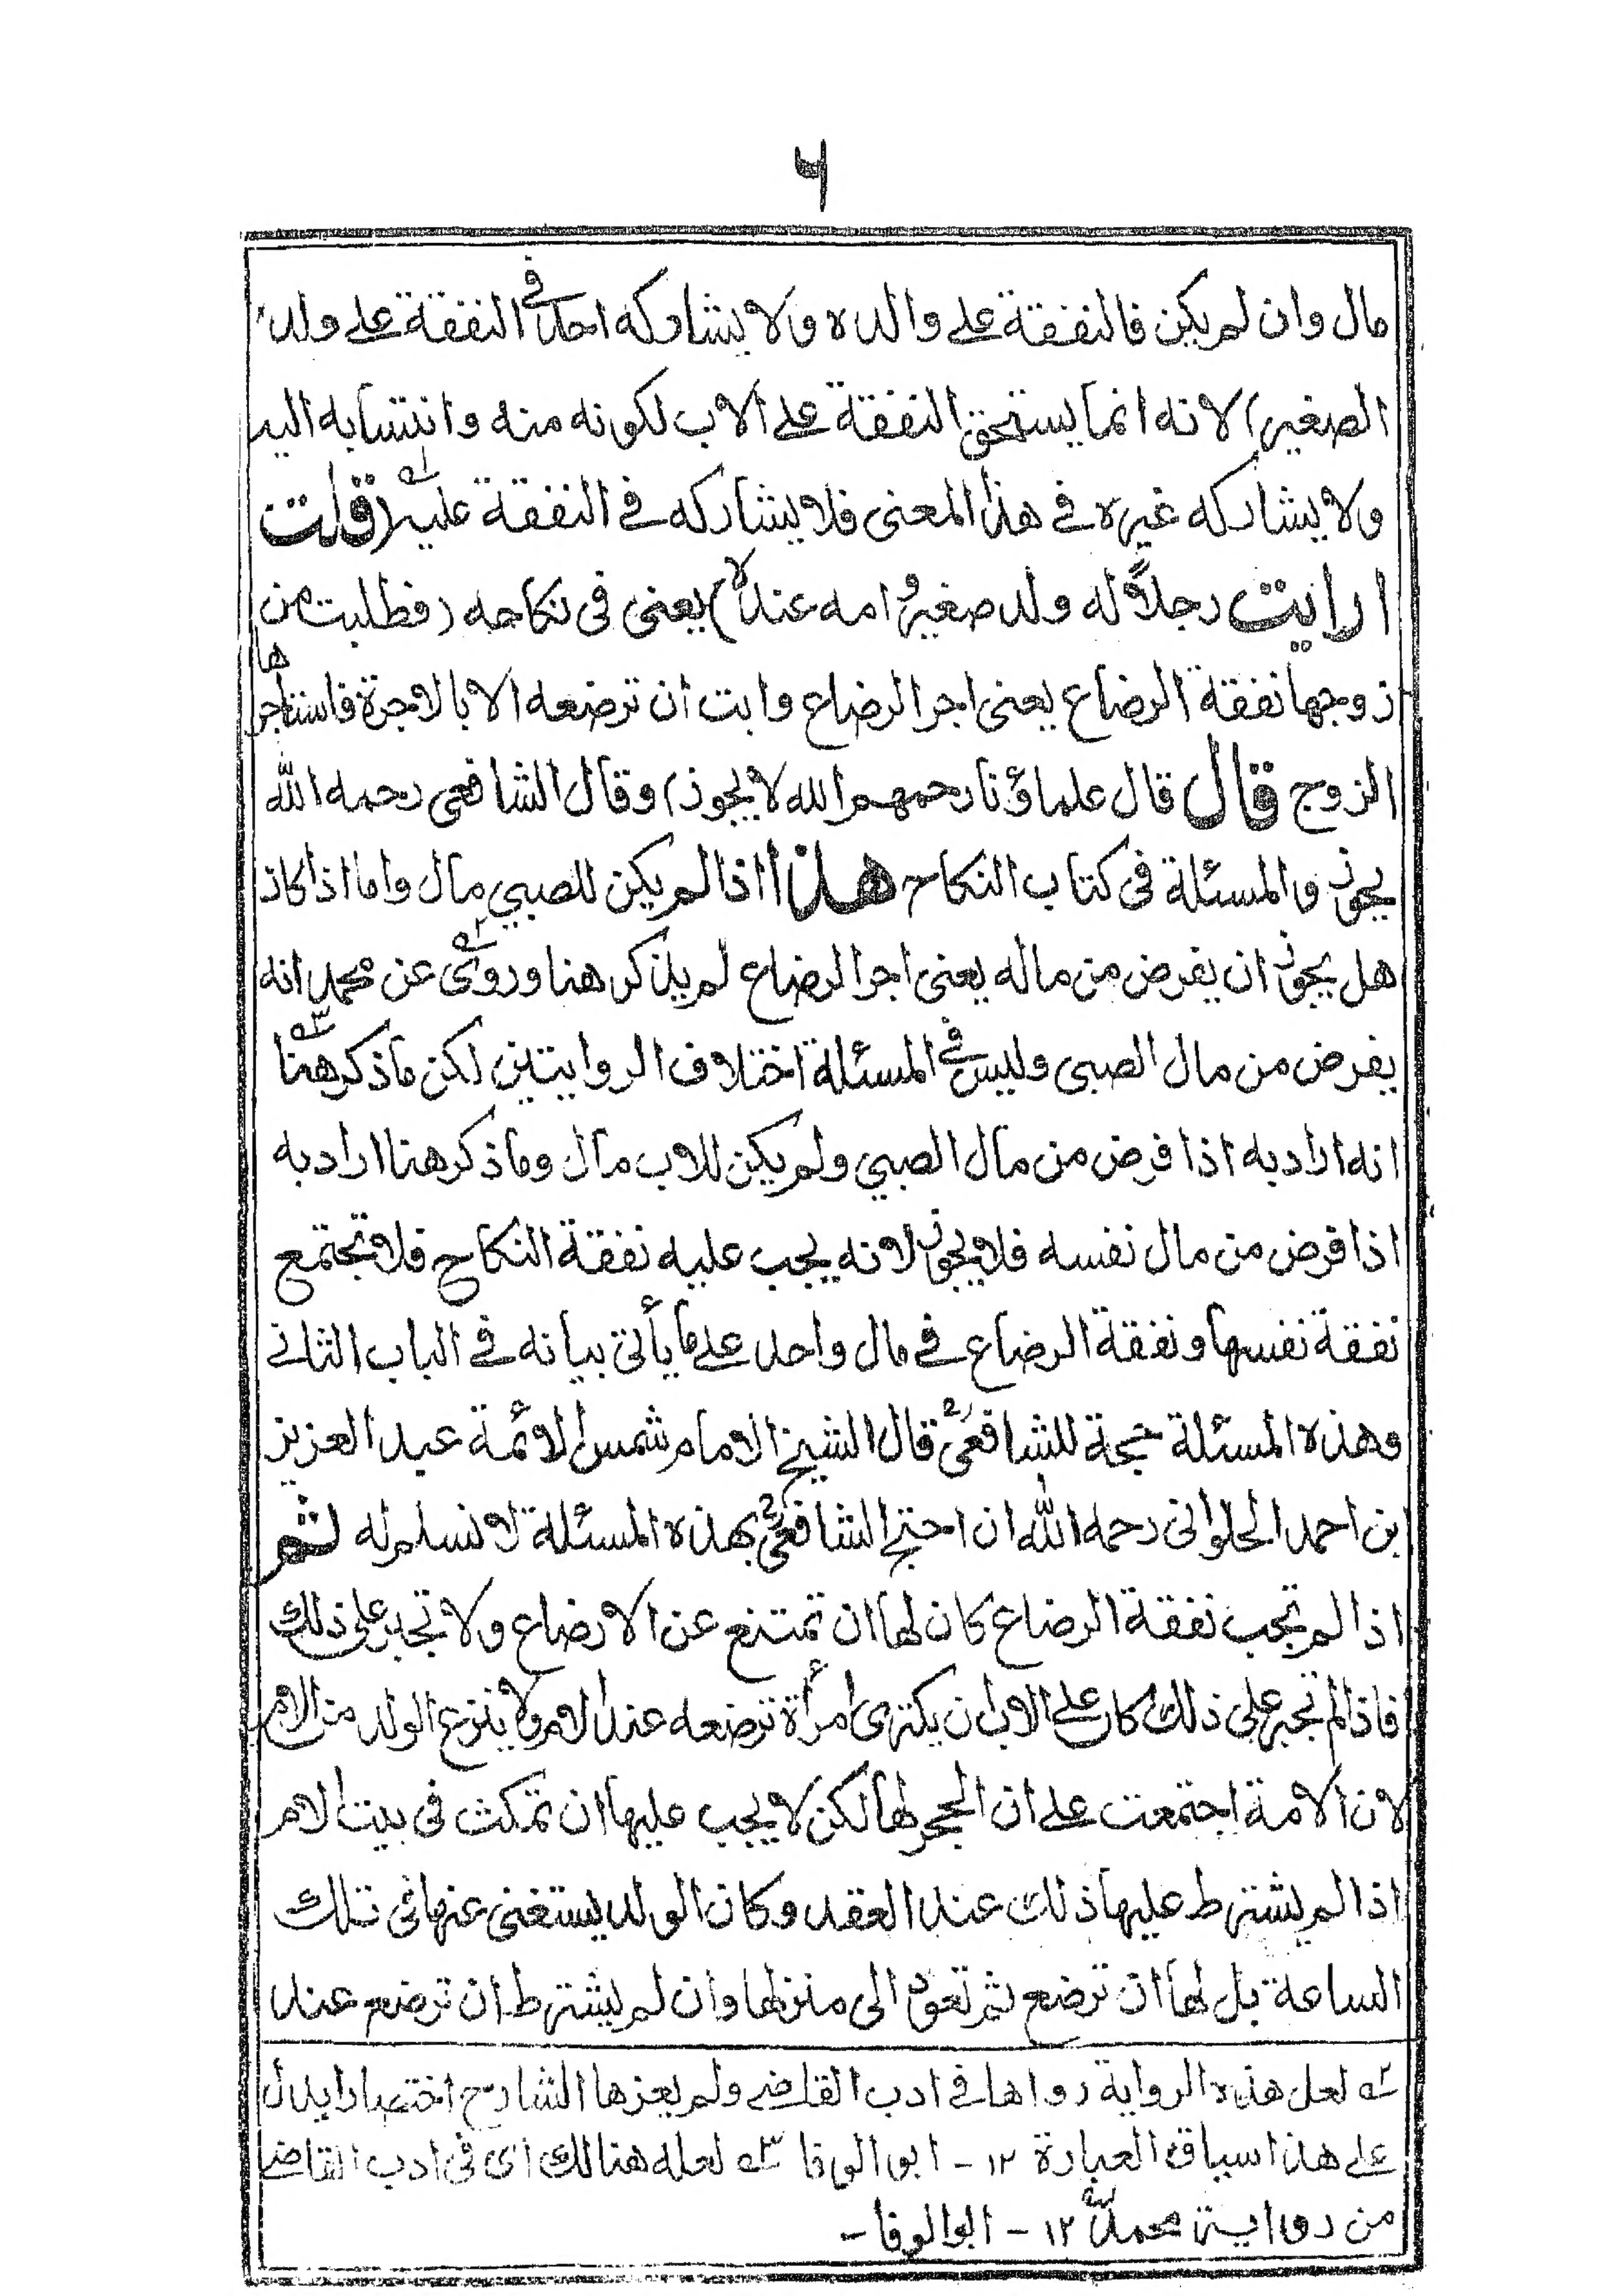 ٦
مال وان لم يكن فالنفقة على والده ولا يشاركه احد فى النفقة على ولده
الصغير) لانه انما يستحق النفقة على الاب لكونه منه وانتسابه اليه
ولا يشاركه غيره فى هذا المعنى فلا يشاركه فى النفقة عليه (قلت
ارايت رجلاً له ولد صغير وامه عنده) يعنى فى نكاحه (فطلبت من
زوجها نفقة الرضاع يعنى اجر الرضاع وابت ان ترضعه الا بالاجرة فاستأجرها
الزوج قال قال علماؤنا رحمهم الله لا يجوز) وقال الشافعى رحمه الله
يجوز والمسئلة فى كتاب النكاح هذا اذا لم يكن للصبي مال واما اذا كان
هل يجوز ان يفرض من ماله يعنى اجر الرضاع لم يذكر هنا وروى عن محمد انه
يفرض من مال الصبى وليس فى المسئلة اختلاف الروايتين لكن ما ذكر هنا
انه اراد به اذا فرض من مال الصبي ولم يكن للاب مال وما ذكر هنا اراد به
اذا فرض من مال نفسه فلا يجوز لانه يجب عليه نفقة النكاح فلا تجتمع
نفقة نفسها ونفقة الرضاع فى مال واحد على ما يأتى بيانه فى الباب الثانى
وهذه المسئلة حجة للشافعىؒ قال الشيخ الامام شمس الائمة عبد العزيز
بن احمد الحلوانى رحمه الله ان احتج الشافعىؒ بهذه المسئلة لا نسلم له ثم
اذا لم تجب نفقة الرضاع كان لها ان تمتنع عن الارضاع ولا تجبر على ذلك
فاذا لم تجبر على ذلك كان على الاب ان يكترى امرأة ترضعه عند الام ولا ينزع الولد من الام
لان الامة اجتمعت على ان الحجر لها لكن لا يجب عليها ان تمكث فى بيت الام
اذا لم يشترط عليها ذلك عند العقد وكان الولد يستغنى عنها فى تلك
الساعة بل لها ان ترضع ثم تعود الى منزلها وان لم يشترط ان ترضع عند
؂٢ لعل هذه الرواية رواها فى ادب القاضى ولم يعزها الشارح اختصارا يدل
على هذا سياق العبارة ١٢ - ابو الوفا ؂٣ لعله هنالك اى فى ادب القاضى
من رواية محمدؒ ١٢ - ابو الوفا -